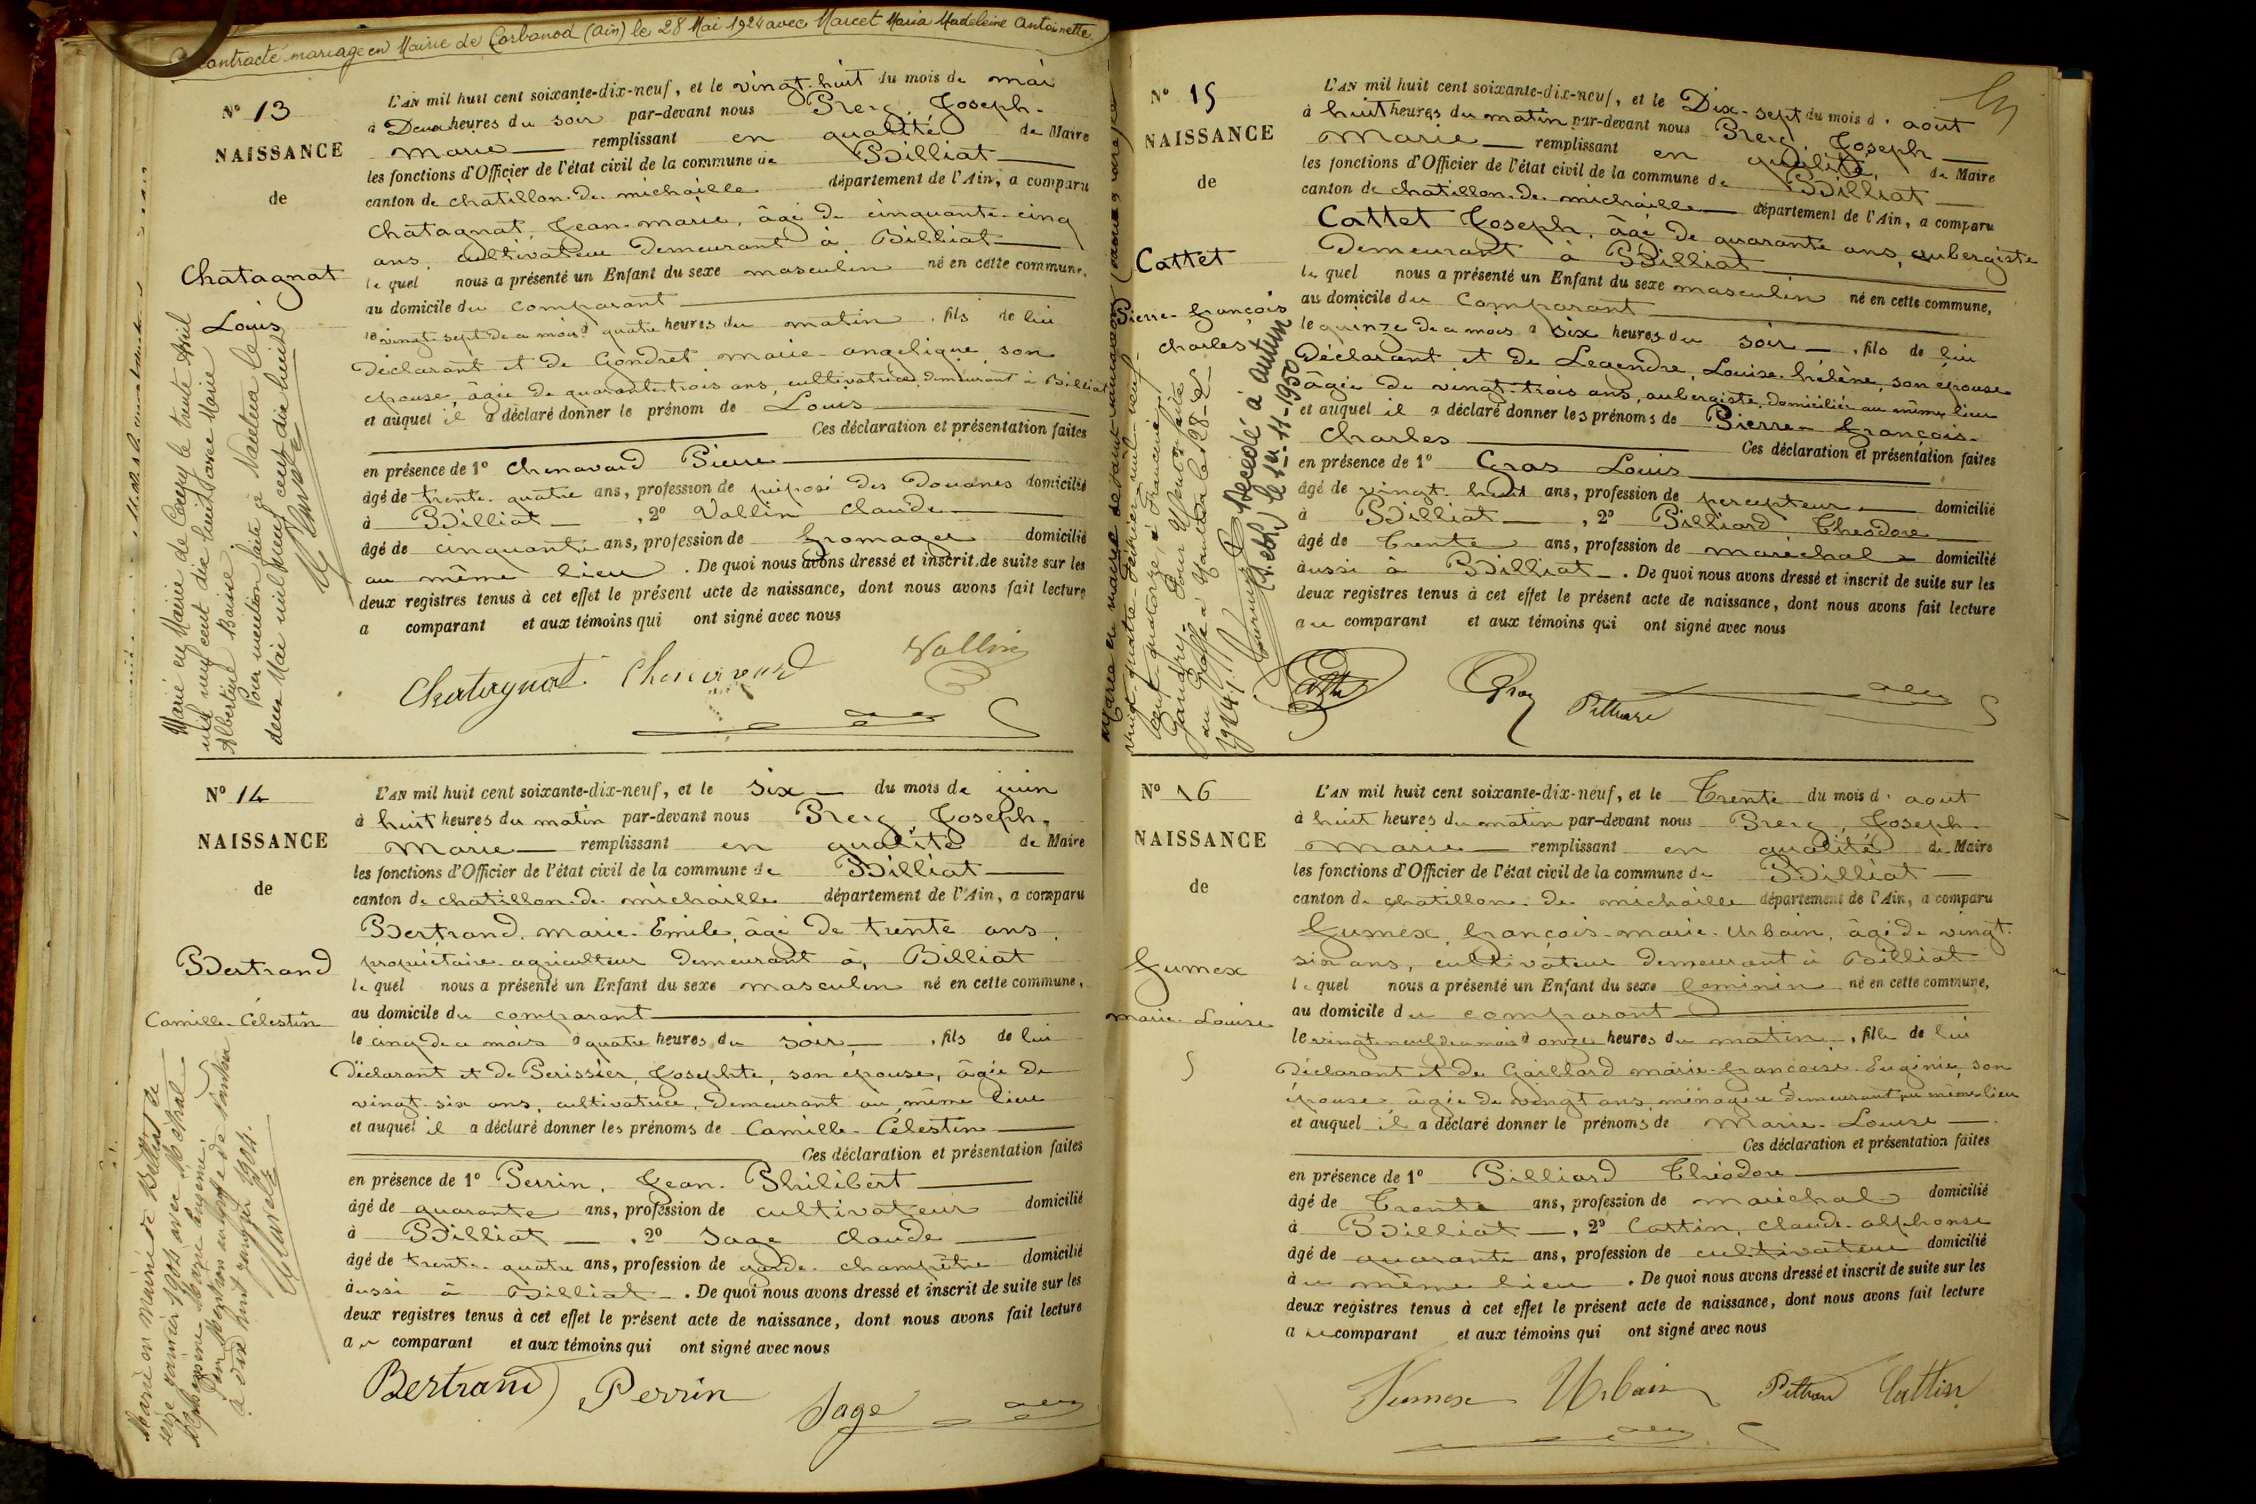 contracté mariage en Mairie de Corbonod (Ain) le 28 Mai 1924 avec Marcet Maria Madeleine Antoinette
N° 13
NAISSANCE
de
Chatagnat
Louis
L'AN mil huit cent soixante-dix-neuf, et le vingt-huit du mois de mai
à Deux heures du soir par-devant nous Prerg, Joseph-
Marie remplissant en qualité de Maire
les fonctions d'Officier de l'état civil de la commune de Billiat
canton de chatillon-de-michaille département de l'Ain, a comparu
Chatagnat, Jean-marie, âgé de cinquante-cinq
ans, cultivateur demeurant à Billiat
lequel nous a présenté un Enfant du sexe masculin né en cette commune,
au domicile du comparant
le vingt-sept de ce mois à quatre heures du matin, fils de lui
déclarant et de Gondret marie-angelique, son
épouse, âgée de quarante-trois ans, cultivatrice, demeurant à Billiat
et auquel il a déclaré donner le prénom de Louis
Ces déclaration et présentation faites
en présence de 1° Chenavard Pierre
âgé de trente-quatre ans, profession de préposé des Douanes domicilié
à Billiat, 2° Vallin Claude
âgé de cinquante ans, profession de fromager domicilié
au même lieu. De quoi nous avons dressé et inscrit de suite sur les
deux registres tenus à cet effet le présent acte de naissance, dont nous avons fait lecture
a comparant et aux témoins qui ont signé avec nous
Chatagnat Chenavard Vallin
Marié en Mairie de le trente Avril
mil neuf cent dix huit avec Marie
Albertine
Pour mention faite à Nantua le
deux Mai mil neuf cent dix huit
N° 14
NAISSANCE
de
Bertrand
Camille-Célestin
L'AN mil huit cent soixante-dix-neuf, et le six du mois de juin
à huit heures du matin par-devant nous Prerg Joseph,
Marie remplissant en qualité de Maire
les fonctions d'Officier de l'état civil de la commune de Billiat
canton de chatillon-de-michaille département de l'Ain, a comparu
Bertrand, marie-Emile, âgé de trente ans,
propriétaire-agriculteur demeurant à Billiat
lequel nous a présenté un Enfant du sexe masculin né en cette commune,
au domicile du comparant
le cinq de ce mois à quatre heures du soir, fils de lui
déclarant et de Perissier, Josephte, son épouse, âgée de
vingt-six ans, cultivatrice, demeurant au même lieu
et auquel il a déclaré donner les prénoms de Camille-Célestin
Ces déclaration et présentation faites
en présence de 1° Perrin, Jean-Philibert
âgé de quarante ans, profession de cultivateur domicilié
à Billiat, 2° Sage Claude
âgé de trente-quatre ans, profession de garde-champêtre domicilié
aussi à Billiat. De quoi nous avons dressé et inscrit de suite sur les
deux registres tenus à cet effet le présent acte de naissance, dont nous avons fait lecture
au comparant et aux témoins qui ont signé avec nous
Bertrand Perrin Sage
Marié en Mairie de Billiat le
seize janvier 1904 avec
Marie Eugénie
Pour Mention au greffe de Nantua
le dix huit janvier 1904.
N° 15
NAISSANCE
de
Cattet
Pierre-françois
charles
L'AN mil huit cent soixante-dix-neuf, et le Dix-sept du mois d'aout
à huit heures du matin par-devant nous Prerg, Joseph
Marie remplissant en qualité de Maire
les fonctions d'Officier de l'état civil de la commune de Billiat
canton de chatillon-de-michaille département de l'Ain, a comparu
Cattet Joseph, âgé de quarante ans, aubergiste
demeurant à Billiat
lequel nous a présenté un Enfant du sexe masculin né en cette commune,
au domicile du comparant
le quinze de ce mois à six heures du soir, fils de lui
déclarant et de Legendre, Louise-hélène, son épouse
âgée de vingt-trois ans, aubergiste, domiciliée au même lieu
et auquel il a déclaré donner les prénoms de Pierre-françois-
Charles Ces déclaration et présentation faites
en présence de 1° Gras Louis
âgé de vingt-huit ans, profession de percepteur domicilié
à Billiat, 2° Pilliard Théodore
âgé de Trente ans, profession de maréchal domicilié
aussi à Billiat. De quoi nous avons dressé et inscrit de suite sur les
deux registres tenus à cet effet le présent acte de naissance, dont nous avons fait lecture
au comparant et aux témoins qui ont signé avec nous
Gras
Décédé à Autun
le 1er-11-1950
N° 16
NAISSANCE
de
Gumex
marie-Louise
L'AN mil huit cent soixante-dix-neuf, et le Trente du mois d'aout
à huit heures du matin par-devant nous Prerg, Joseph-
Marie remplissant en qualité de Maire
les fonctions d'Officier de l'état civil de la commune de Billiat
canton de chatillon-de-michaille département de l'Ain, a comparu
Gumex, françois-marie-Urbain, âgé de vingt-
six ans, cultivateur demeurant à Billiat
lequel nous a présenté un Enfant du sexe féminin né en cette commune,
au domicile du comparant
le vingt-neuf de ce mois à onze heures du matin, fille de lui
déclarant et de Gaillard marie-françoise-Eugénie, son
épouse, âgée de vingt ans, ménagère demeurant au même lieu
et auquel il a déclaré donner le prénoms de Marie-Louise
Ces déclaration et présentation faites
en présence de 1° Pilliard Théodore
âgé de Trente ans, profession de maréchal domicilié
à Billiat, 2° Cattin, Claude-alphonse
âgé de quarante ans, profession de cultivateur domicilié
au même lieu. De quoi nous avons dressé et inscrit de suite sur les
deux registres tenus à cet effet le présent acte de naissance, dont nous avons fait lecture
au comparant et aux témoins qui ont signé avec nous
Gumex Urbain Cattin